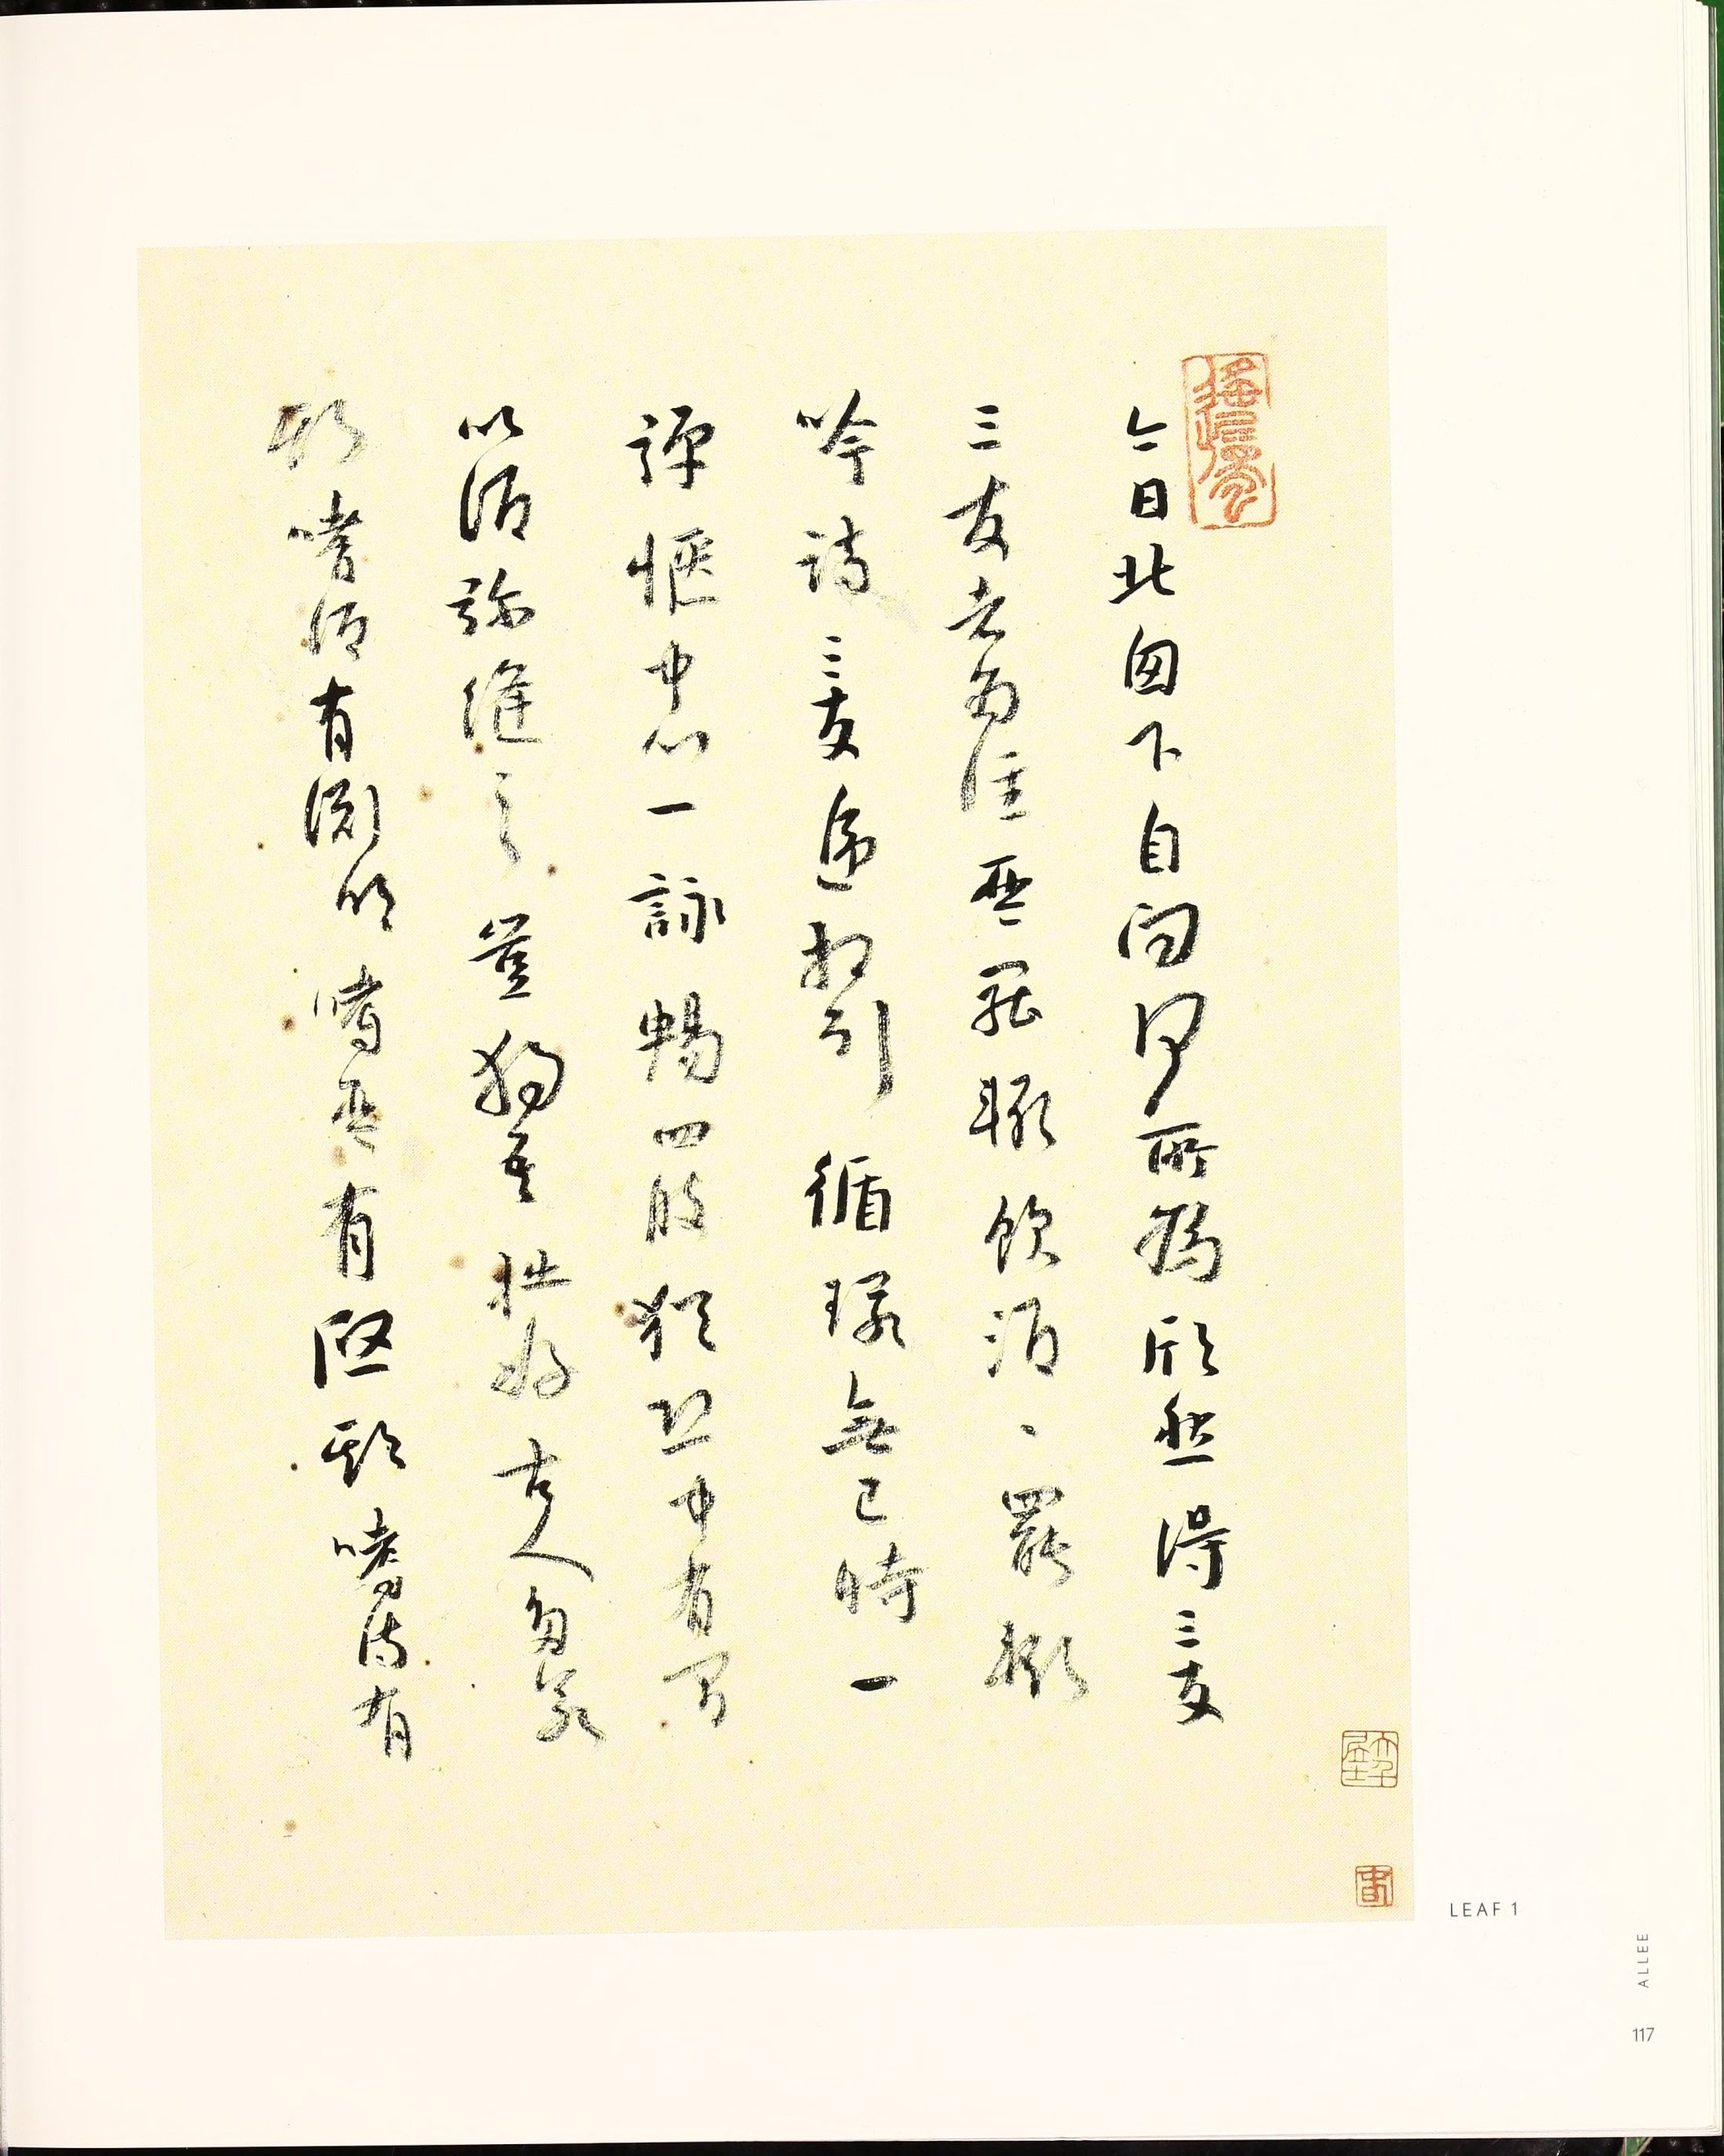 今日北囱下自问何所為欣然得三友
三友者為誰琴罷輒飲酒、罷輒
吟詩三友遞相引循環無已時一
彈愜中心一詠暢四肢猶恐中有間
以酒弥縫之豈獨吾拙好古人多若
斯嗜酒有淵明嗜琴有啟期嗜詩有
LEAF 1
ALLEE
117